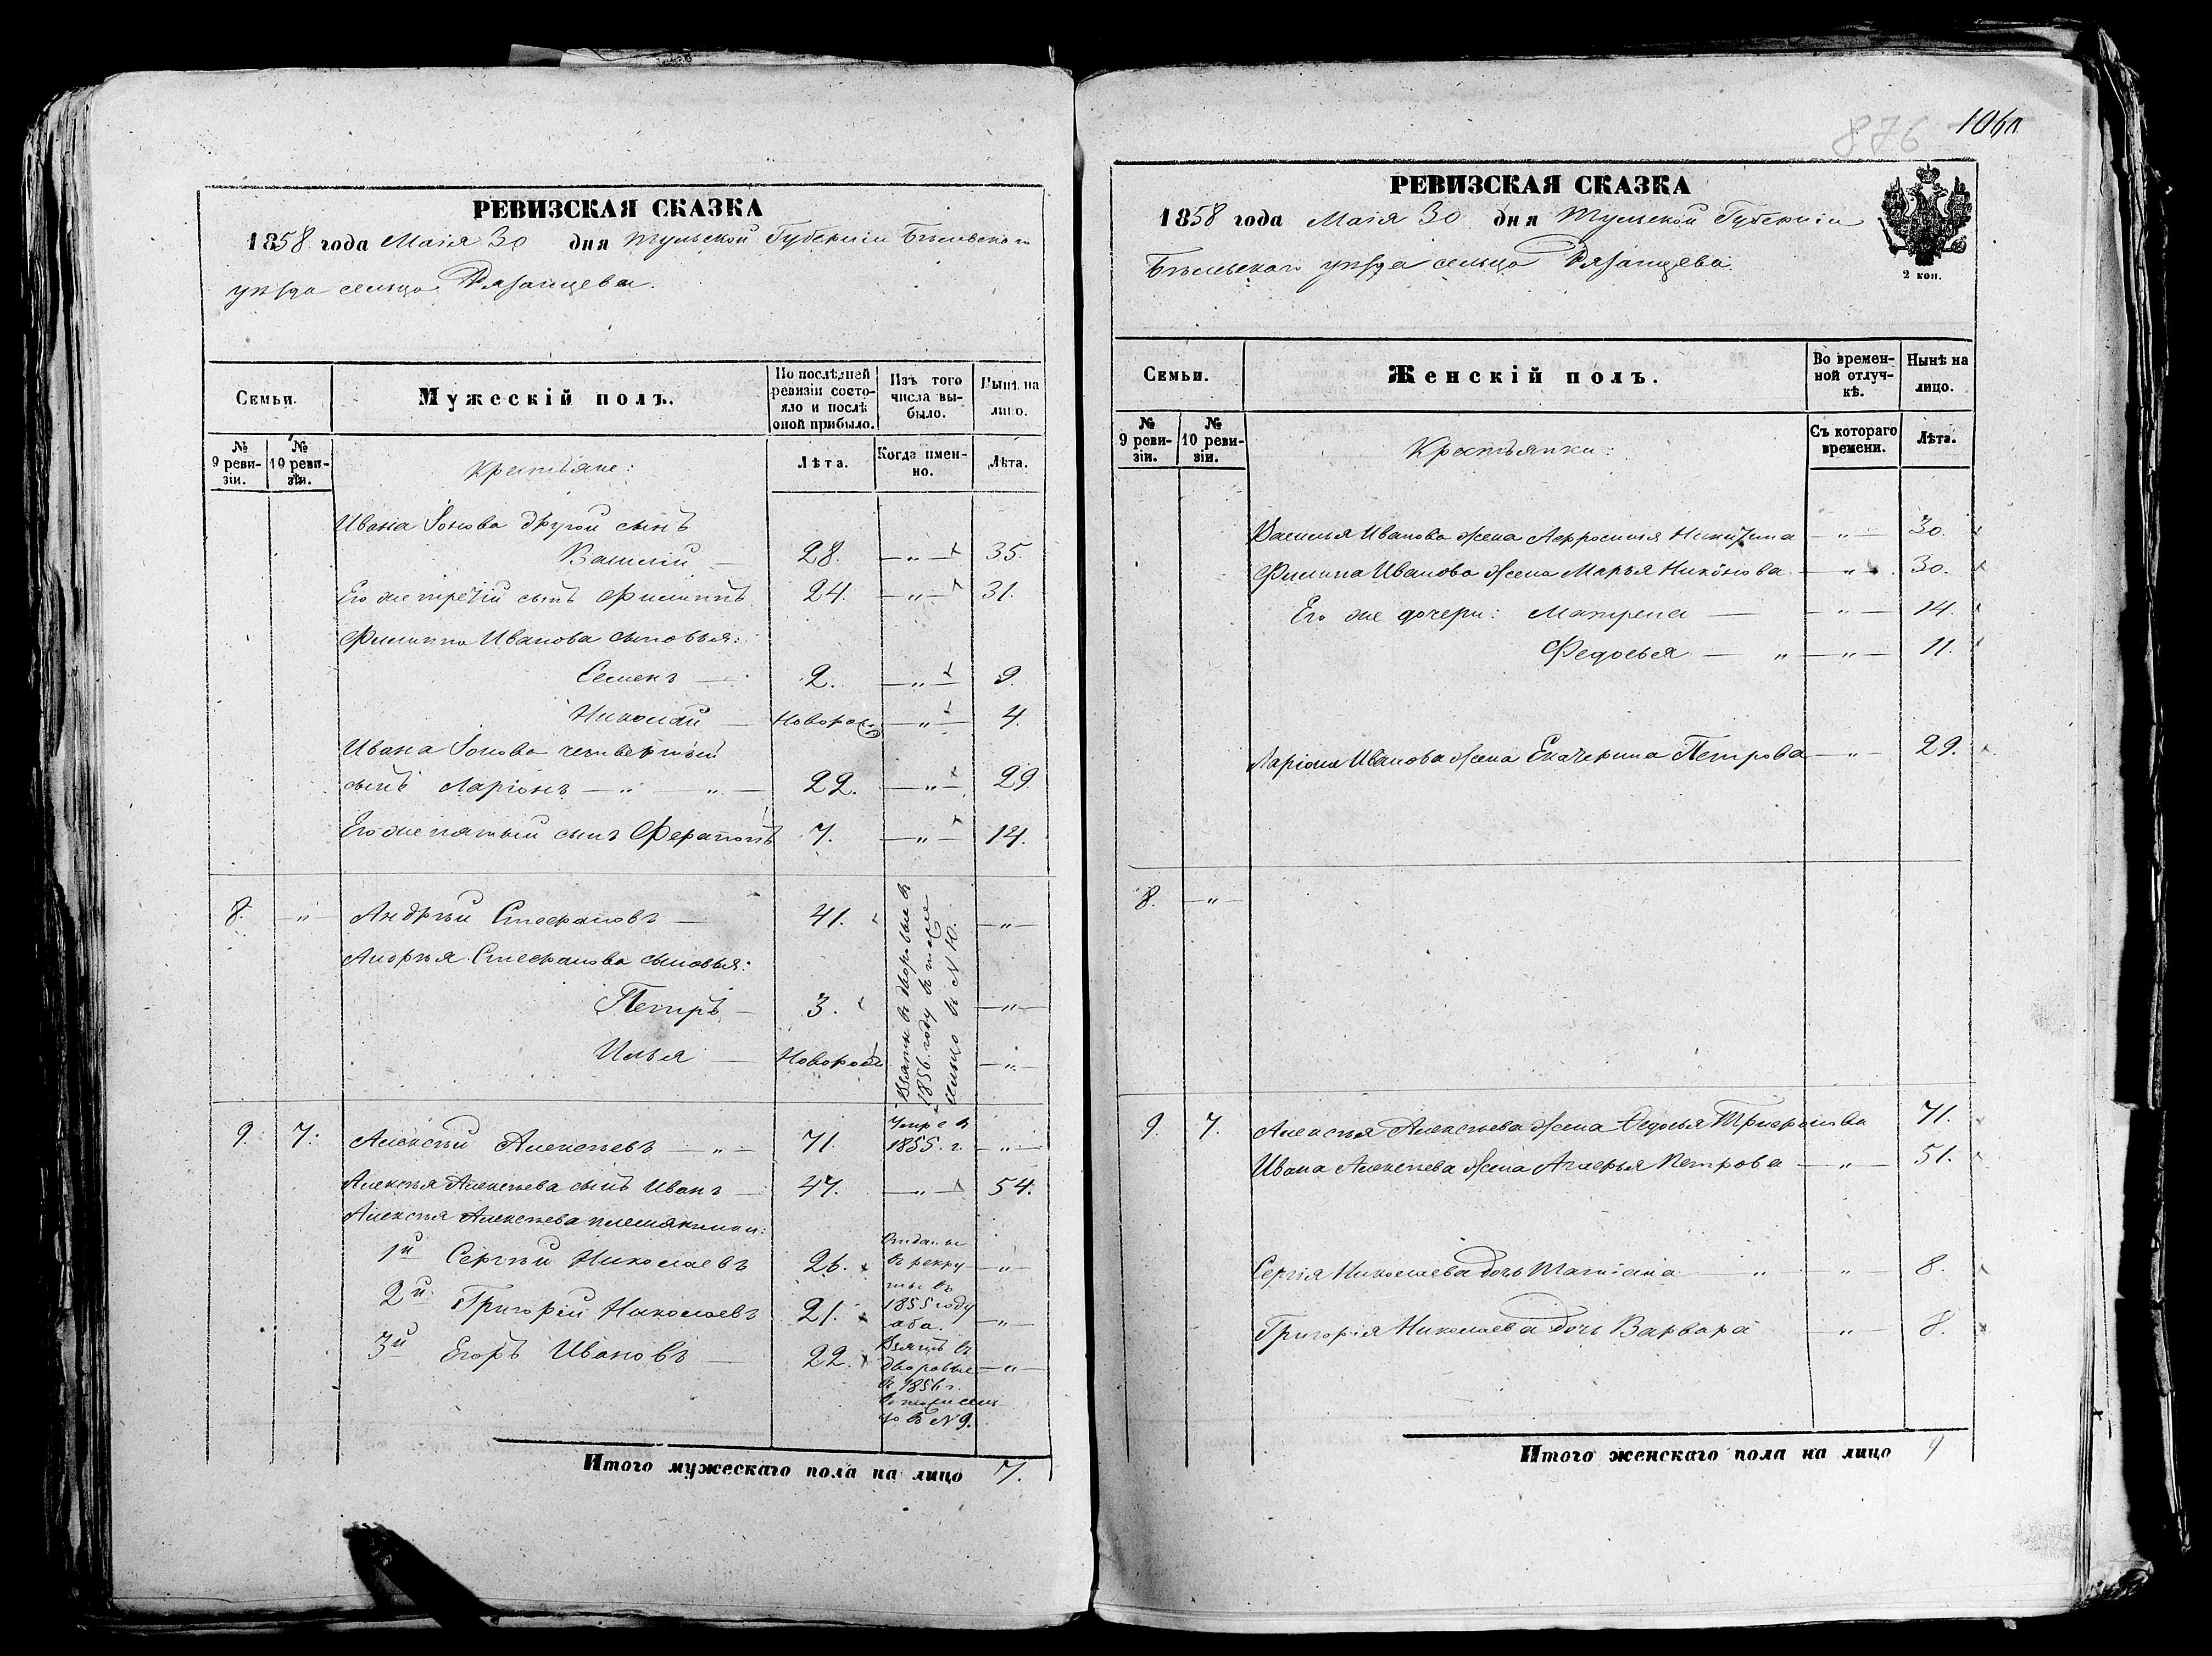 РЕВИЗСКАЯ СКАЗКА
1858 года Маія 30 дня Тульской Губерніи Бѣлевскаго
уѣзда сельцо Рязанцева.
Семьи.
Мужескій полъ.
По послѣдней ревизіи состояло и послѣ оной прибыло.
Изъ того числа выбыло.
Нынѣ на лицо.
№ 9 ревизіи.
№ 10 ревизіи.
Крестьяне:
Лѣта.
Когда именно.
Лѣта.
Ивана Іонова другой сынъ
Василій — 28. — " — 35.
Его же третій сынъ Филиппъ 24. — " — 31.
Филиппа Иванова сыновья:
Семенъ — 2. — " — 9.
Николай — Новорож — " — 4.
Ивана Іонова четвертый
сынъ Ларіонъ — " — " — 22. — " — 29.
Его же пятый сынъ Ферапонтъ 7. — " — 14.
8. — " — Андрѣй Стефановъ — 41. — " —
Андрѣя Стефанова сыновья:
Петръ — 3. — " —
Илья — Новорож — " —
Взяты въ дворовые въ
1856. году въ тоже
сельцо въ № 10.
9. 7. Алексѣй Алексѣевъ — " — 71. Умре въ 1855. г. — " —
Алексѣя Алексѣева сынъ Иванъ — 47. — " — 54.
Алексѣя Алексѣева племянники:
1й Сергѣй Николаевъ 26. — " —
2й Григорій Николаевъ 21. — " —
Отданы
въ рекру
ты въ
1855 году
оба.
3й Егоръ Ивановъ — 22. — " —
Взятъ въ
дворовые
въ 1856 г.
въ тоже сель
цо въ № 9.
Итого мужескаго пола на лицо 7.
876 1060
РЕВИЗСКАЯ СКАЗКА
1858 года Маія 30 дня Тульской Губерніи
Бѣлевскаго уѣзда сельцо Рязанцева.
2 коп.
Семьи.
Женскій полъ.
Во временной отлучкѣ.
Нынѣ на лицо.
№ 9 ревизіи.
№ 10 ревизіи.
Крестьянки:
Съ котораго времени.
Лѣта.
Василья Иванова жена Афросинья Никитина — " — 30.
Филиппа Иванова жена Марья Никонова — " — 30.
Его же дочери: Матрена — — " — 14.
Федосья — " — " — 11.
Ларіона Иванова жена Екатерина Петрова — " — 29.
8. — " —
9. 7. Алексѣя Алексѣева жена Ѳедосья Трифонова 71.
Ивана Алексѣева жена Агафья Петрова — " — 51.
Сергія Николаева дочь Татіана " " — 8.
Григорія Николаева дочь Варвара — " — 8.
Итого женскаго пола на лицо 9